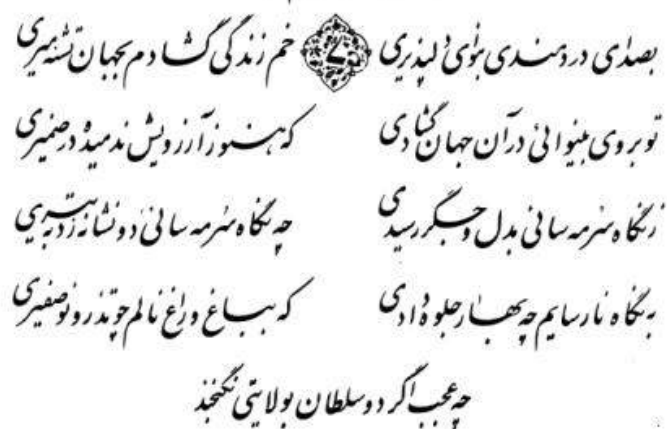 بصدای دردمندی بنوای دلپذیری ۷ خم زندگی گشادم بجهان تشنه میری
تو بروی بینوائی در آن جهان گشادی که هنوز آرزویش ندمیده در ضمیری
ز نگاه سرمه سائی بدل و جگر رسیدی چه نگاه سرمه سائی دو نشانه زد به تیری
به نگاه نارسایم چه بهار جلوه دادی که بباغ و راغ نالم چو تذرو نو صفیری
چه عجب اگر دو سلطان بولایتی نگنجند